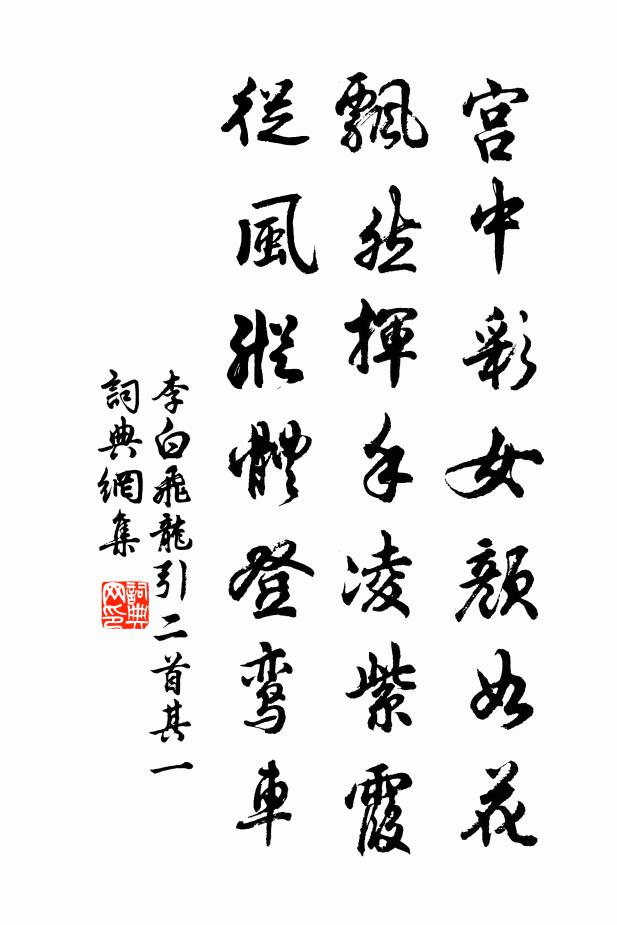 宮中彩女顏如花
飄然揮手凌紫霞
從風縱體登鸾車
李白飛龍引二首其一
詞典網集
詞典网印